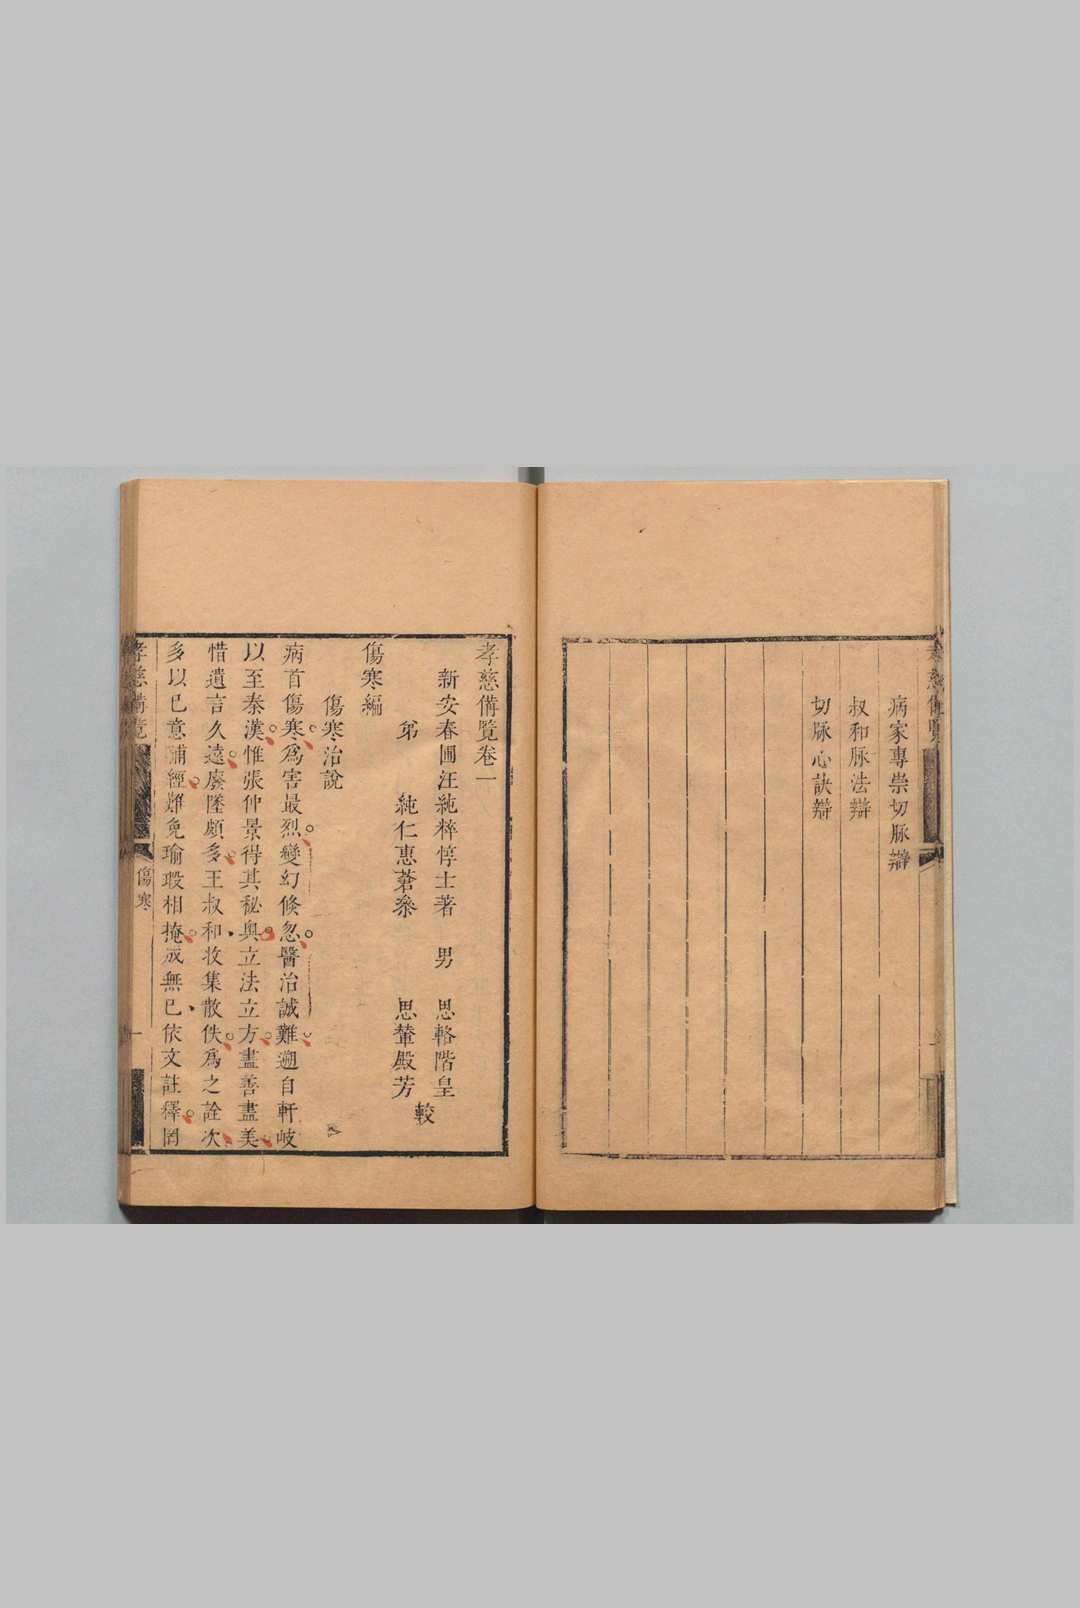 病家專崇切脉辯
叔和脉法辯
切脉心訣辯
孝慈備覽卷一
新安春圃汪純粹惇士著　男　思輅階皇
弟　純仁惠蒼叅　思輦殿芳
較
傷寒編
傷寒治說
病首傷寒爲害最烈變幻倏忽醫治誠難遡自軒岐
以至秦漢惟張仲景得其秘奥立法立方盡善盡美
惜遺言久遠廢墜頗多王叔和收集散佚爲之詮次
多以已意補經難免瑜瑕相掩成無已依文註釋罔
孝慈備覽
傷寒
一